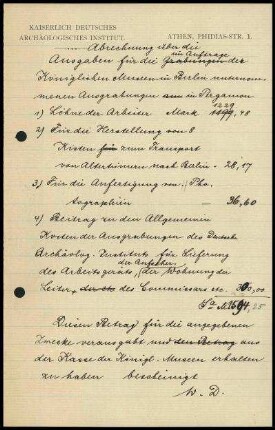 KAISERLICH DEUTSCHES
ARCHÄOLOGISCHES INSTITUT.
ATHEN, PHIDIAS-STR. 1.
Abrechnung über die
im Auftrage
Ausgaben für die Grabungen der
Königlichen Museen in Berlin unternom-
menen Ausgrabungen aus in Pergamon
1229
1) Löhne der Arbeiter Mark 1199,48
2) Für die Herstellung von 8
Kisten für zum Transport
von Altertümern nach Berlin - 28,17
3) Für die Anfertigung von Pho-
tographien - 36,60
4) Beitrag zu den Allgemeinen
Kosten der Ausgrabungen des Deutsch.
Archäolog. Instituts für Lieferung
der Aufseher,
des Arbeitsgeräts, der Wohnung der
Leiter, des Commissars etc. 300,00
Sa M. 1594,25
Diesen Betrag für die angegebenen
Zwecke verausgabt und den Betrag aus
der Kasse der Königl. Museen erhalten
zu haben bescheinigt
W. D.